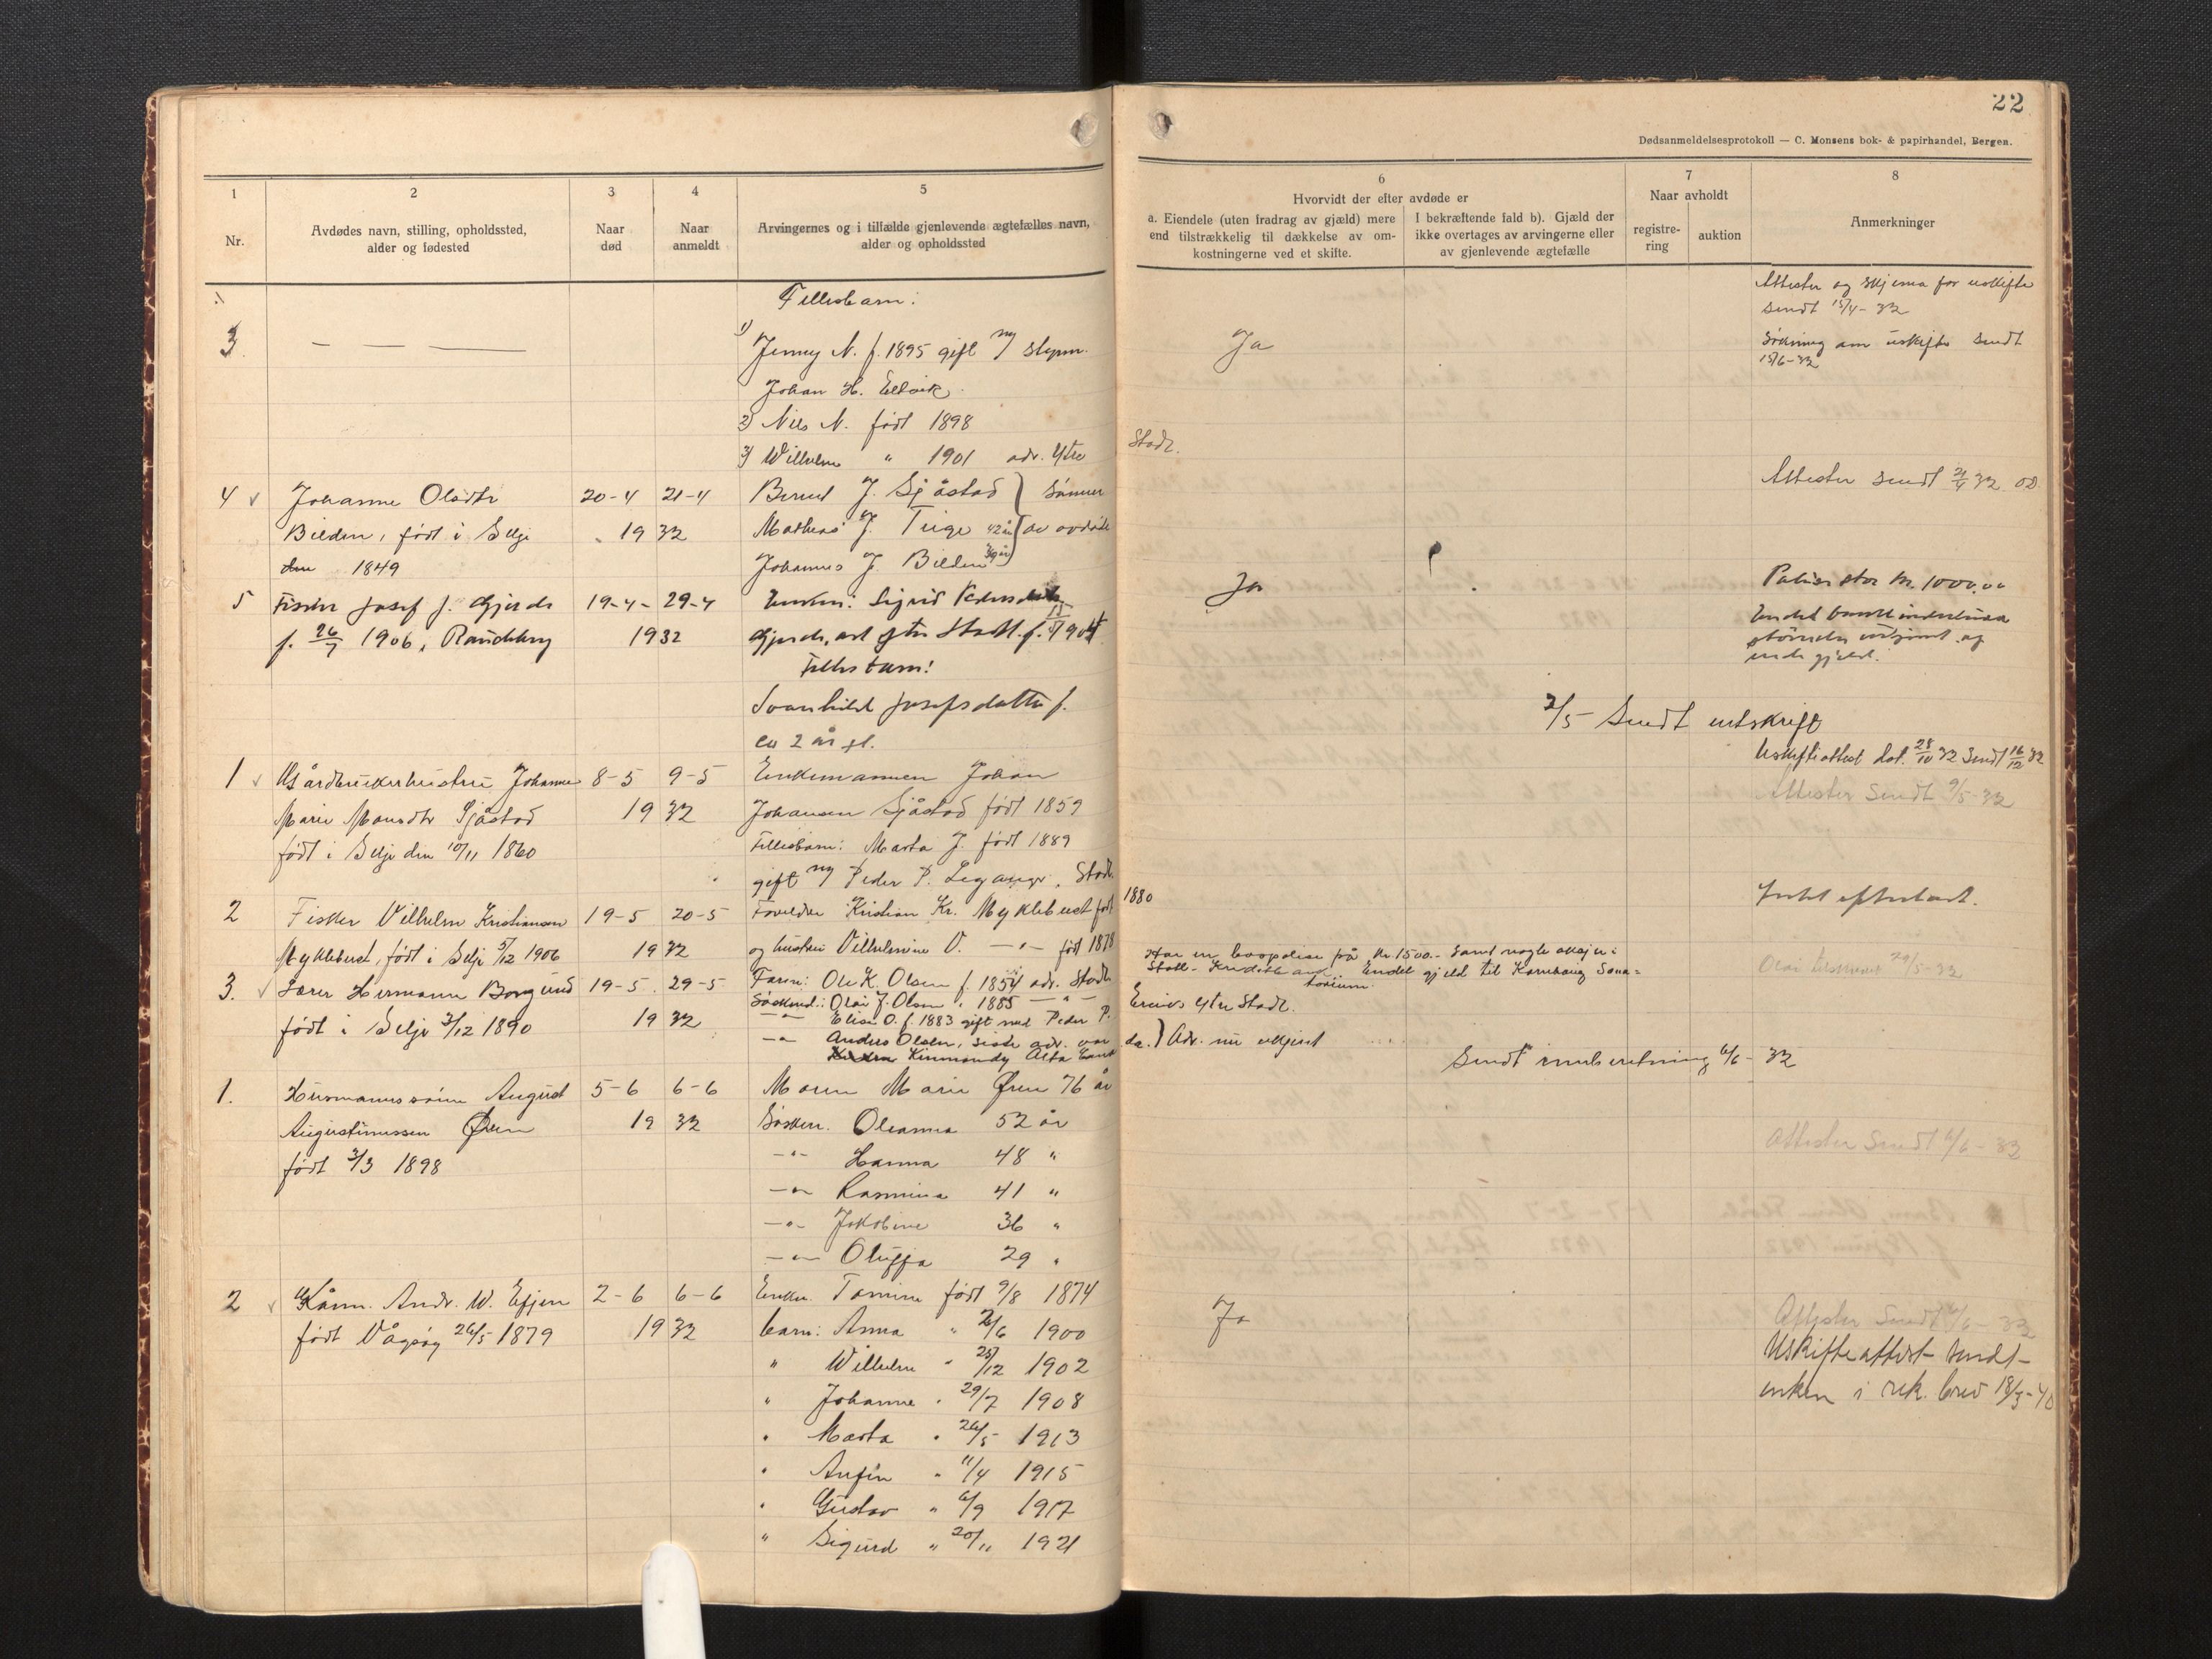 22
Dødsanmeldelsesprotokoll — C. Monsens bok- & papirhandel, Bergen.
1
2
3
4
5
6
7
8
Nr.
Avdødes navn, stilling, opholdssted,
alder og fødested
Naar
død
Naar
anmeldt
Arvingernes og i tilfælde gjenlevende ægtefælles navn,
alder og opholdssted
Hvorvidt der efter avdøde er
a. Eiendele (uten fradrag av gjæld) mere
end tilstrækkelig til dækkelse av om-
kostningerne ved et skifte.
I bekræftende fald b). Gjæld der
ikke overtages av arvingerne eller
av gjenlevende ægtefælle
Naar avholdt
registre-
ring
auktion
Anmerkninger
Fellesbarn:
Attester og skjema for uskifte
sendt 15/4-32
3. — — — 1) Jenny N. f. 1895 gift m/ styrm. Ja Søkning om uskifte sendt
15/6-32
Johan H. Ellvik
2) Nils N. født 1898
3) Wilhelm " 1901 adr. Ytre Stadt.
4 Johanne Olsdtr 20-4 21-4 Bernt J. Sjåstad } Sønner Attester sendt 21/4 32. OD
Bilden, født i Selje 1932 Mathias J. Tuge 42 år } av avdøde
den 1849 Johannes J. Bilden 39 år
5 Fisker Josef J. Gjerde 19-4- 29-4 Enken: Sigrid Pedersdtr Ja Polise stor kr. 1000,00
f. 26/7 1906, Raudeberg 1932 Gjerde, adr ytre Stadt. f. 1904 Endel bankinnskudd
størrelse ukjent og
Fellesbarn! endel gjeld.
Svanhild Josefsdatter f. 2/5 Sendt utskrift
ca 2 år gl. Uskifteattest dat. 28/10 32 Sendt 16/12 32
1 Gårdbrukerhustru Johanne 8-5 9-5 Enkemannen Johan Attester Sendt 9/5-32
Marie Monsdtr Sjåstad 1932 Johansen Sjåstad født 1859
født i Selje den 10/11 1860 Fellesbarn: Marta J. født 1889
gift m/ Peder P. Leganger, Stadt.
2 Fisker Vilhelm Kristiansen 19-5 20-5 Foreldre Kristian Kr. Myklebust født 1880 Intet efterlatt.
Myklebust, født i Selje 5/12 1906 1932 og hustru Vilhelmine V. —"— født 1878
3. Lærer Hermann Borgund 19-5 29-5 Faren: Ole K. Olsen f. 1854 adr. Stadt Har en livspolise på kr 1500.- Samt nogle aksjer i
Stadt- Kreditbank. Endel gjeld til Kornhaug Sana=
torium.
29/5-32
født i Selje 3/12 1890 1932 Søskend.: Olai J. Olsen " 1885 —"—
—"— Elise O. f. 1883 gift med Peder P. Ervik ytre Stadt.
—"— Anders Olsen, siste adr. var
Kinmandy Alta Canada. } Adr. nu ukjent
Sendt innberetning 6/6-32
1. Husmannssønn August 5-6 6-6 Moren Marie Øren 76 år
Augustinussen Øren 1932 Søsken. Oleanna 52 år Attester Sendt 6/6-32
født 3/3 1898 —"— Hanna 48 "
—"— Rasmina 41 "
—"— Jakobine 36 "
—"— Oluffa 29 "
2 Gårdm. Andr. W. Efjen 2-6 6-6 Enken. Tomine født 9/8 1874 Ja Attester Sendt 6/6-32
født Vågsøy 26/5 1879 1932 barn: Anna " 2/6 1900 Uskifteattest sendt
" Wilhelm " 25/12 1902 enken i rek. brev 18/3-40
" Johanne " 29/7 1908
" Marta " 26/5 1913
" Anfin " 11/4 1915
" Gustav " 6/9 1917
" Sigurd " 20/11 1921